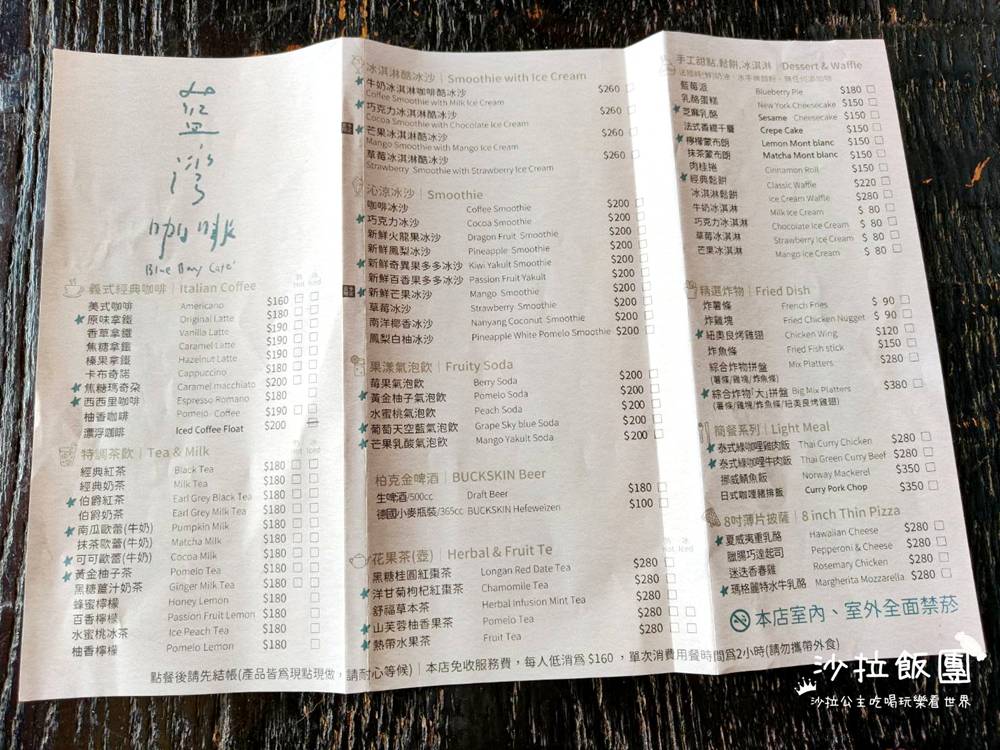 藍灣
咖啡
Blue Bay Cafe'
義式經典咖啡 | Italian Coffee
熱 冰
Hot Iced
美式咖啡 Americano $160
原味拿鐵 Original Latte $180
香草拿鐵 Vanilla Latte $190
焦糖拿鐵 Caramel Latte $190
榛果拿鐵 Hazelnut Latte $190
卡布奇諾 Cappuccino $180
焦糖瑪奇朵 Caramel macchiato $200
西西里咖啡 Espresso Romano $180
柚香咖啡 Pomelo Coffee $190
漂浮咖啡 Iced Coffee Float $200
特調茶飲 | Tea & Milk
熱 冰
Hot Iced
經典紅茶 Black Tea $180
經典奶茶 Milk Tea $180
伯爵紅茶 Earl Grey Black Tea $180
伯爵奶茶 Earl Grey Milk Tea $180
南瓜歐蕾(牛奶) Pumpkin Milk $180
抹茶歐蕾(牛奶) Matcha Milk $180
可可歐蕾(牛奶) Cocoa Milk $180
黃金柚子茶 Pomelo Tea $180
黑糖薑汁奶茶 Ginger Milk Tea $180
蜂蜜檸檬 Honey Lemon $180
百香檸檬 Passion Fruit Lemon $180
水蜜桃冰茶 Ice Peach Tea $180
柚香檸檬 Pomelo Lemon $180
冰淇淋酷冰沙 | Smoothie with Ice Cream
牛奶冰淇淋咖啡酷冰沙 $260
Coffee Smoothie with Milk Ice Cream
巧克力冰淇淋酷冰沙 $260
Cocoa Smoothie with Chocolate Ice Cream
芒果冰淇淋酷冰沙 $260
Mango Smoothie with Mango Ice Cream
草莓冰淇淋酷冰沙 $260
Strawberry Smoothie with Strawberry Ice Cream
沁涼冰沙 | Smoothie
咖啡冰沙 Coffee Smoothie $200
巧克力冰沙 Cocoa Smoothie $200
新鮮火龍果冰沙 Dragon Fruit Smoothie $200
新鮮鳳梨冰沙 Pineapple Smoothie $200
新鮮奇異果多多冰沙 Kiwi Yakult Smoothie $200
新鮮百香果多多冰沙 Passion Fruit Yakult $200
新鮮芒果冰沙 Mango Smoothie $200
草莓冰沙 Strawberry Smoothie $200
南洋椰香冰沙 Nanyang Coconut Smoothie $200
鳳梨白柚冰沙 Pineapple White Pomelo Smoothie $200
果漾氣泡飲 | Fruity Soda
莓果氣泡飲 Berry Soda $200
黃金柚子氣泡飲 Pomelo Soda $200
水蜜桃氣泡飲 Peach Soda $200
葡萄天空藍氣泡飲 Grape Sky blue Soda $200
芒果乳酸氣泡飲 Mango Yakult Soda $200
柏克金啤酒 | BUCKSKIN Beer
生啤酒/500cc Draft Beer $180
德國小麥瓶裝/365cc BUCKSKIN Hefeweizen $100
花果茶(壺) | Herbal & Fruit Te
熱 冰
Hot Iced
黑糖桂圓紅棗茶 Longan Red Date Tea $280
洋甘菊枸杞紅棗茶 Chamomile Tea $280
舒福草本茶 Herbal Infusion Mint Tea $280
山芙蓉柚香果茶 Pomelo Tea $280
熱帶水果茶 Fruit Tea $280
手工甜點.鬆餅.冰淇淋 | Dessert & Waffle
藍莓派 Blueberry Pie $180
乳酪蛋糕 New York Cheesecake $150
芝麻乳酪 Sesame Cheesecake $150
法式香緹千層 Crepe Cake $150
檸檬蒙布朗 Lemon Mont blanc $150
抹茶蒙布朗 Matcha Mont blanc $150
肉桂捲 Cinnamon Roll $150
經典鬆餅 Classic Waffle $220
冰淇淋鬆餅 Ice Cream Waffle $280
牛奶冰淇淋 Milk Ice Cream $ 80
巧克力冰淇淋 Chocolate Ice Cream $ 80
草莓冰淇淋 Strawberry Ice Cream $ 80
芒果冰淇淋 Mango Ice Cream $ 80
精選炸物 | Fried Dish
炸薯條 French Fries $ 90
炸雞塊 Fried Chicken Nugget $ 90
紐奧良烤雞翅 Chicken Wing $120
炸魚條 Fried Fish stick $150
綜合炸物拼盤 Mix Platters $280
(薯條/雞塊/炸魚條)
綜合炸物「大」拼盤 Big Mix Platters $380
(薯條/雞塊/炸魚條/紐奧良烤雞翅)
簡餐系列 | Light Meal
泰式綠咖哩雞肉飯 Thai Curry Chicken $280
泰式綠咖哩牛肉飯 Thai Green Curry Beef $280
挪威鯖魚飯 Norway Mackerel $350
日式咖哩豬排飯 Curry Pork Chop $350
8吋薄片披薩 | 8 inch Thin Pizza
夏威夷重乳酪 Hawaiian Cheese $280
臘腸巧達起司 Pepperoni & Cheese $280
迷迭香春雞 Rosemary Chicken $280
瑪格麗特水牛乳酪 Margherita Mozzarella $280
本店室內、室外全面禁菸
點餐後請先結帳(產品皆為現點現做，請耐心等候) | 本店免收服務費，每人低消為 $160，單次消費用餐時間為2小時(請勿攜帶外食)
沙拉飯團
沙拉公主吃喝玩樂看世界